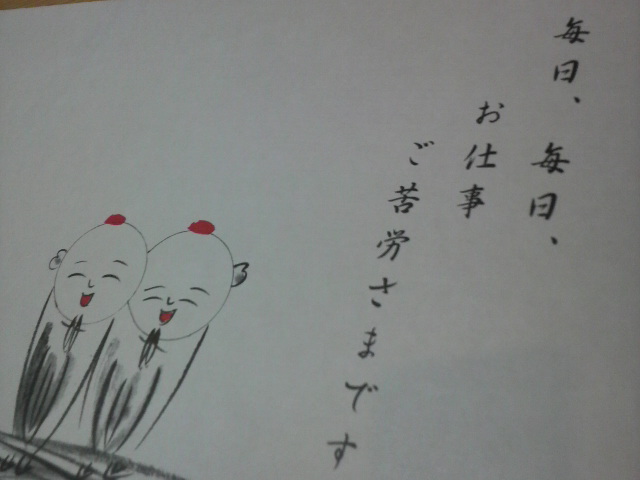 毎日、毎日、
お仕事
ご苦労さまです